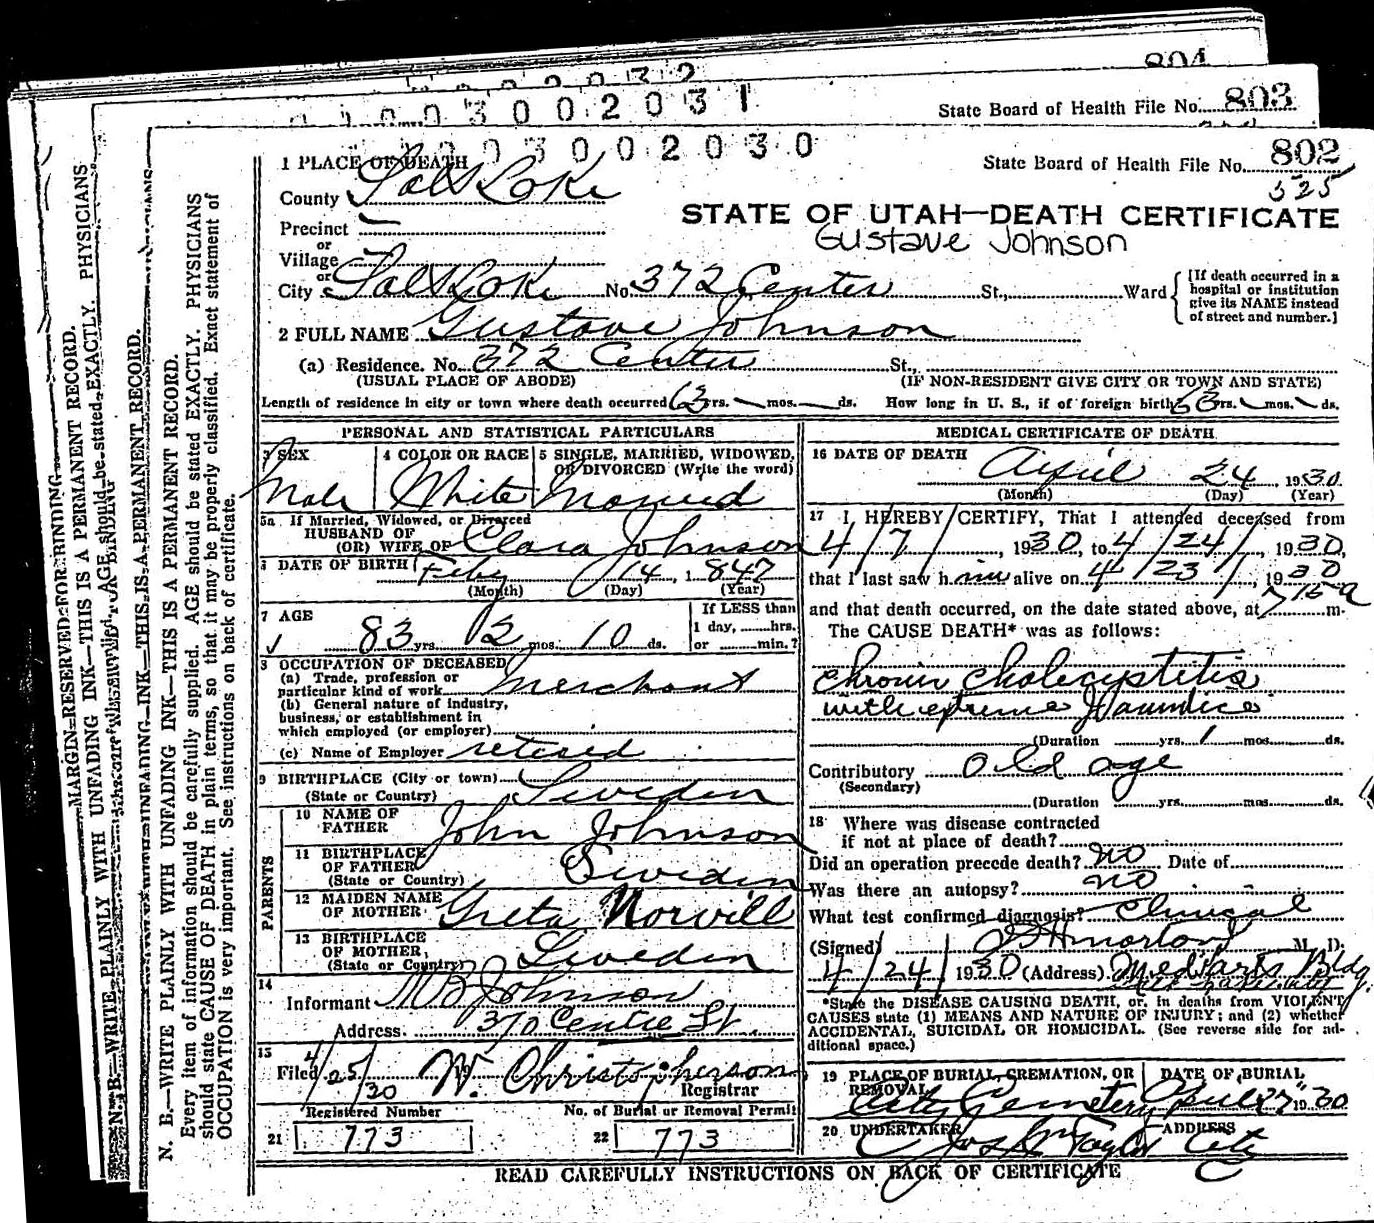 804
0 0 2 0 3 2
State Board of Health File No. 803
0 0 3 0 0 2 0 3 1
State Board of Health File No. 802
0 0 3 0 0 2 0 3 0
525
STATE OF UTAH—DEATH CERTIFICATE
Gustave Johnson
1 PLACE OF DEATH
County Salt Lake
Precinct —
or
Village
or
City Salt Lake No. 372 Center St., Ward
[If death occurred in a
hospital or institution
give its NAME instead
of street and number.]
2 FULL NAME Gustave Johnson
(a) Residence. No. 372 Center St.,
(USUAL PLACE OF ABODE) (IF NON-RESIDENT GIVE CITY OR TOWN AND STATE)
Length of residence in city or town where death occurred 63 yrs. — mos. — ds. How long in U. S., if of foreign birth 63 yrs. — mos. — ds.
PERSONAL AND STATISTICAL PARTICULARS
3 SEX
Male
4 COLOR OR RACE
White
5 SINGLE, MARRIED, WIDOWED,
OR DIVORCED (Write the word)
Married
5a If Married, Widowed, or Divorced
HUSBAND OF
(OR) WIFE OF Clara Johnson
6 DATE OF BIRTH Feby 14, 1847
(Month) (Day) (Year)
7 AGE
83 yrs. 2 mos. 10 ds.
If LESS than
1 day, hrs.
or min.?
8 OCCUPATION OF DECEASED
(a) Trade, profession or
particular kind of work Merchant
(b) General nature of industry,
business, or establishment in
which employed (or employer)
(c) Name of Employer retired
9 BIRTHPLACE (City or town)
(State or Country) Sweden
PARENTS
10 NAME OF
FATHER John Johnson
11 BIRTHPLACE
OF FATHER
(State or Country) Sweden
12 MAIDEN NAME
OF MOTHER Greta Norvill
13 BIRTHPLACE
OF MOTHER
(State or Country) Sweden
14
Informant M B Johnson
Address 370 Centre St.
15
Filed 4/25/30 W. Christopherson
Registrar
Registered Number
21 773
No. of Burial or Removal Permit
22 773
MEDICAL CERTIFICATE OF DEATH
16 DATE OF DEATH April 24, 1930
(Month) (Day) (Year)
17 I HEREBY CERTIFY, That I attended deceased from
4/7/, 1930, to 4/24/, 1930,
that I last saw him alive on 4/23/, 1930
and that death occurred, on the date stated above, at 7 15 a m.
The CAUSE DEATH* was as follows:
Chronic Cholecystitis
with extreme Jaundice
(Duration yrs. 1 mos. ds.
Contributory Old age
(Secondary)
(Duration yrs. mos. ds.
18 Where was disease contracted
if not at place of death?
Did an operation precede death? no Date of
Was there an autopsy? no
What test confirmed diagnosis? Clinical
(Signed) M. D.
4/24/1930 (Address) Med. Arts Bldg.
*State the DISEASE CAUSING DEATH, or, in deaths from VIOLENT
CAUSES state (1) MEANS AND NATURE OF INJURY; and (2) whether
ACCIDENTAL, SUICIDAL OR HOMICIDAL. (See reverse side for ad-
ditional space.)
19 PLACE OF BURIAL, CREMATION, OR
REMOVAL
City Cemetery
DATE OF BURIAL
April 27 1930
20 UNDERTAKER
Taylor
ADDRESS
City
READ CAREFULLY INSTRUCTIONS ON BACK OF CERTIFICATE
MARGIN RESERVED FOR BINDING
N. B.—WRITE PLAINLY WITH UNFADING INK—THIS IS A PERMANENT RECORD.
Every item of information should be carefully supplied. AGE should be stated EXACTLY. PHYSICIANS
should state CAUSE OF DEATH in plain terms, so that it may be properly classified. Exact statement of
OCCUPATION is very important. See instructions on back of certificate.